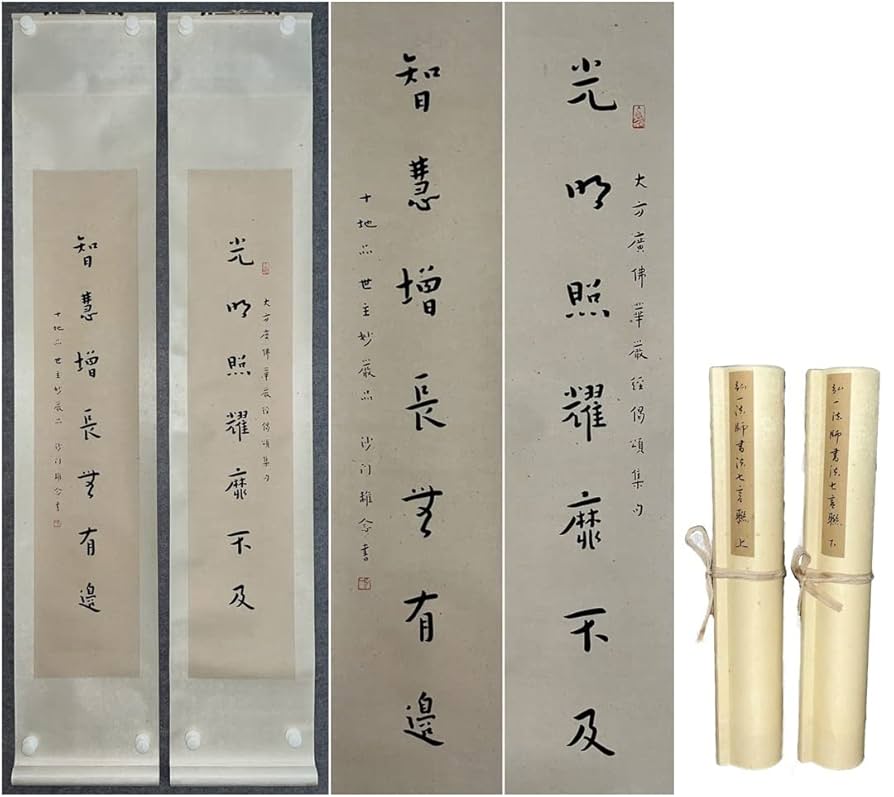 大方廣佛華嚴經偈頌集句
光明照耀靡不及
智慧增長無有邊
十地品 世主妙嚴品 沙门 念書
大方廣佛華嚴經偈頌集句
光明照耀靡不及
智慧增長無有邊
十地品 世主妙嚴品 沙门 念書
弘一法師書法七言聯 上
弘一法師書法七言聯 下